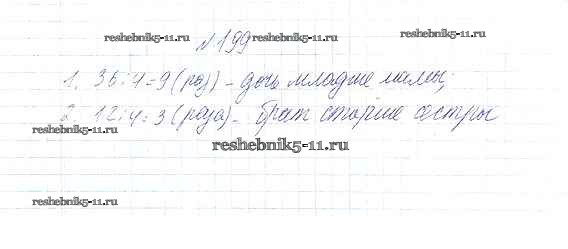 reshebnik5-11.ru
reshebnik5-11.ru
№199
1. 36:4=9 (раз) - дочь младше мамы;
2. 12:4=3 (раза) - брат старше сестры
reshebnik5-11.ru
reshebnik5-11.ru
reshebnik5-11.ru
reshebnik5-11.ru
reshebnik5-11.ru